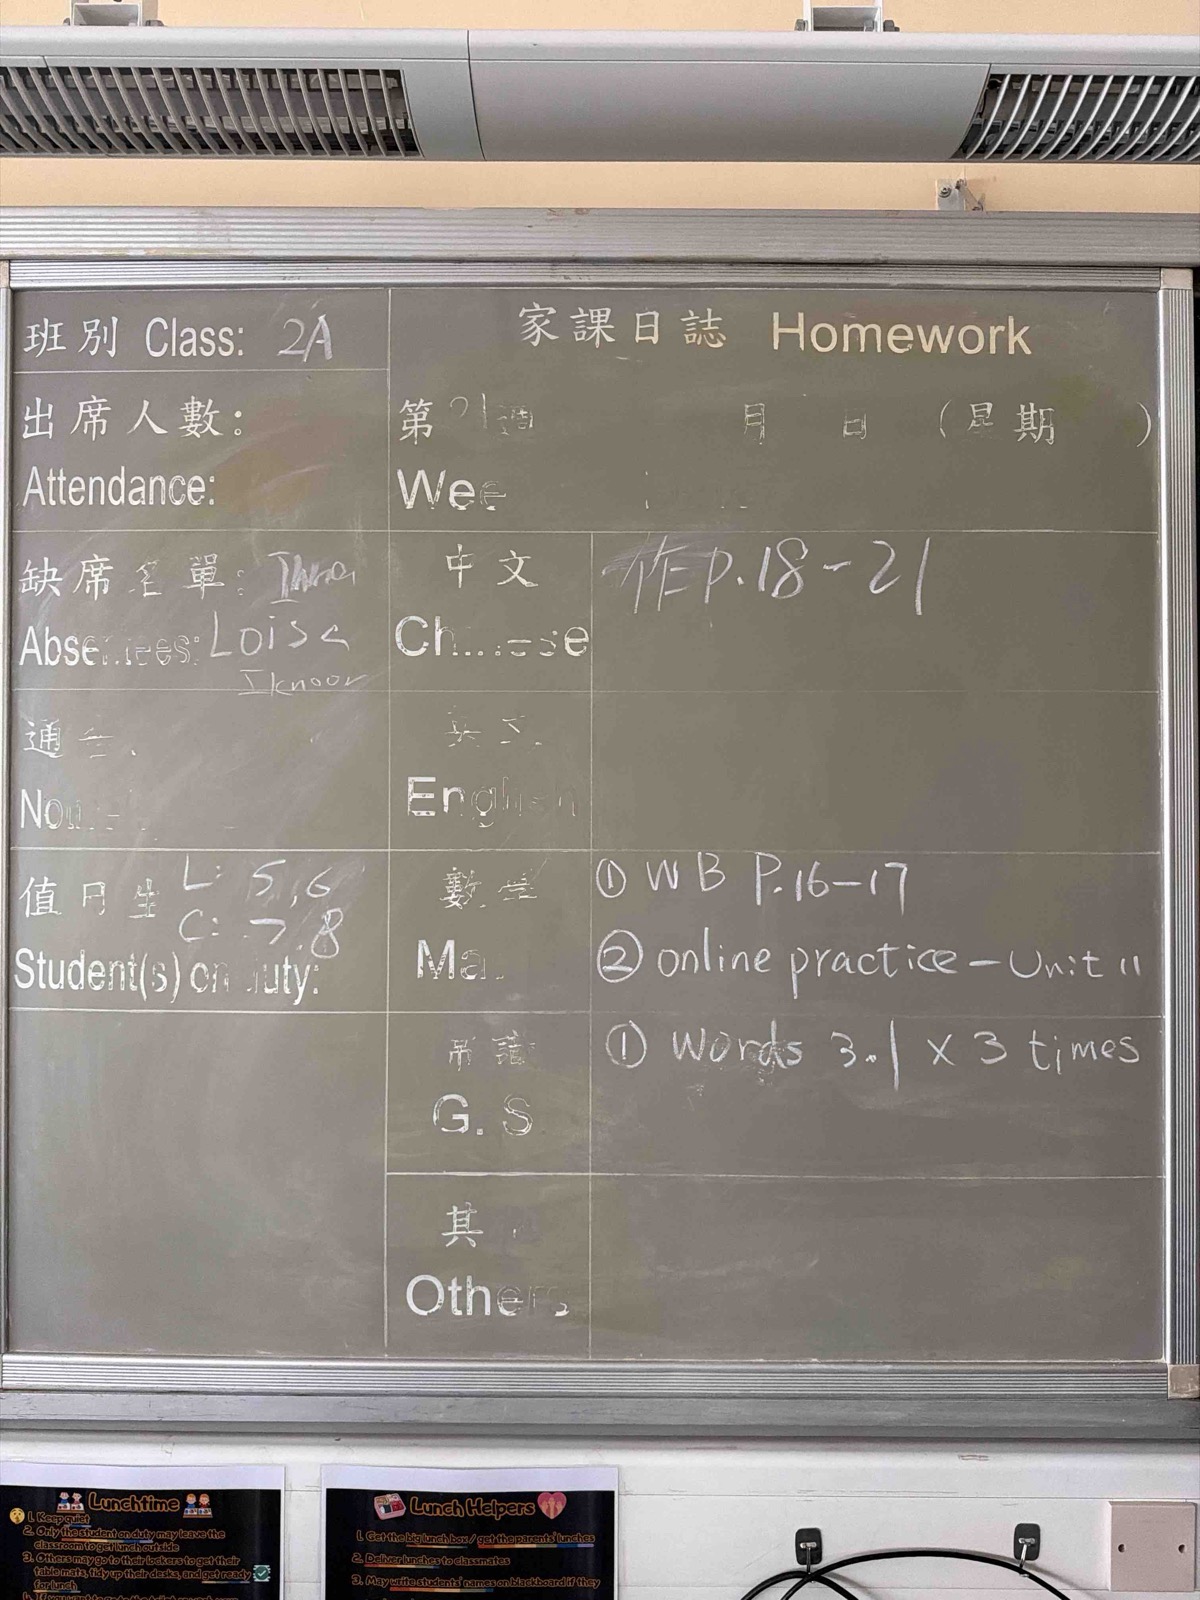 班別 Class: 2A
家課日誌 Homework
出席人數:
Attendance:
第 週 月 日 (星期 )
缺席名單:
Absentees: Loisa
Iknoor
中文
Chinese
作 P.18-21
通告
英文
English
值日生 L: 5,6
C: 7.8
Student(s) on duty:
數學
① WB P.16-17
② online practice - Unit 11
常識
G. S
① Words 3.1 x 3 times
其
Others
Lunchtime
1. Keep quiet
2. Only the student on duty may leave the
classroom to get lunch outside
3. Others may go to their lockers to get their
table mats, tidy up their desks, and get ready
for lunch
Lunch Helpers
1. Get the big lunch box / get the parents' lunches
2. Deliver lunches to classmates
3. May write students' names on blackboard if they